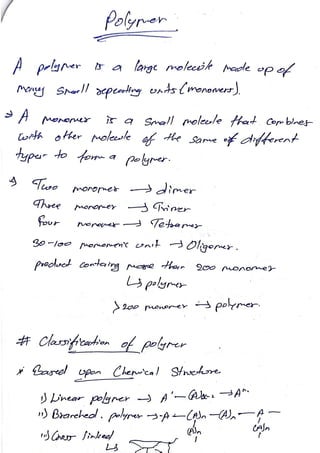 Polymer
A polymer is a large molecule made up of
many small repeating units (monomers).
→ A monomer is a small molecule that combines
with other molecule of the same of different
types to form a polymer.
Two monomer → dimer
Three monomer → Trimer
four monomer → Tetramer
30-100 monoment unit → Oligomer.
product containg more than 200 monomer
↳ polymer
>200 monomer → polymer.
# Classification of polymer
* Based upon Chemical Structure
i) Linear polymer → A
ii) Branched. polymer → -A-(A)n-(A)n-A-
(A)n (A)n
iii) Cross linked
↳